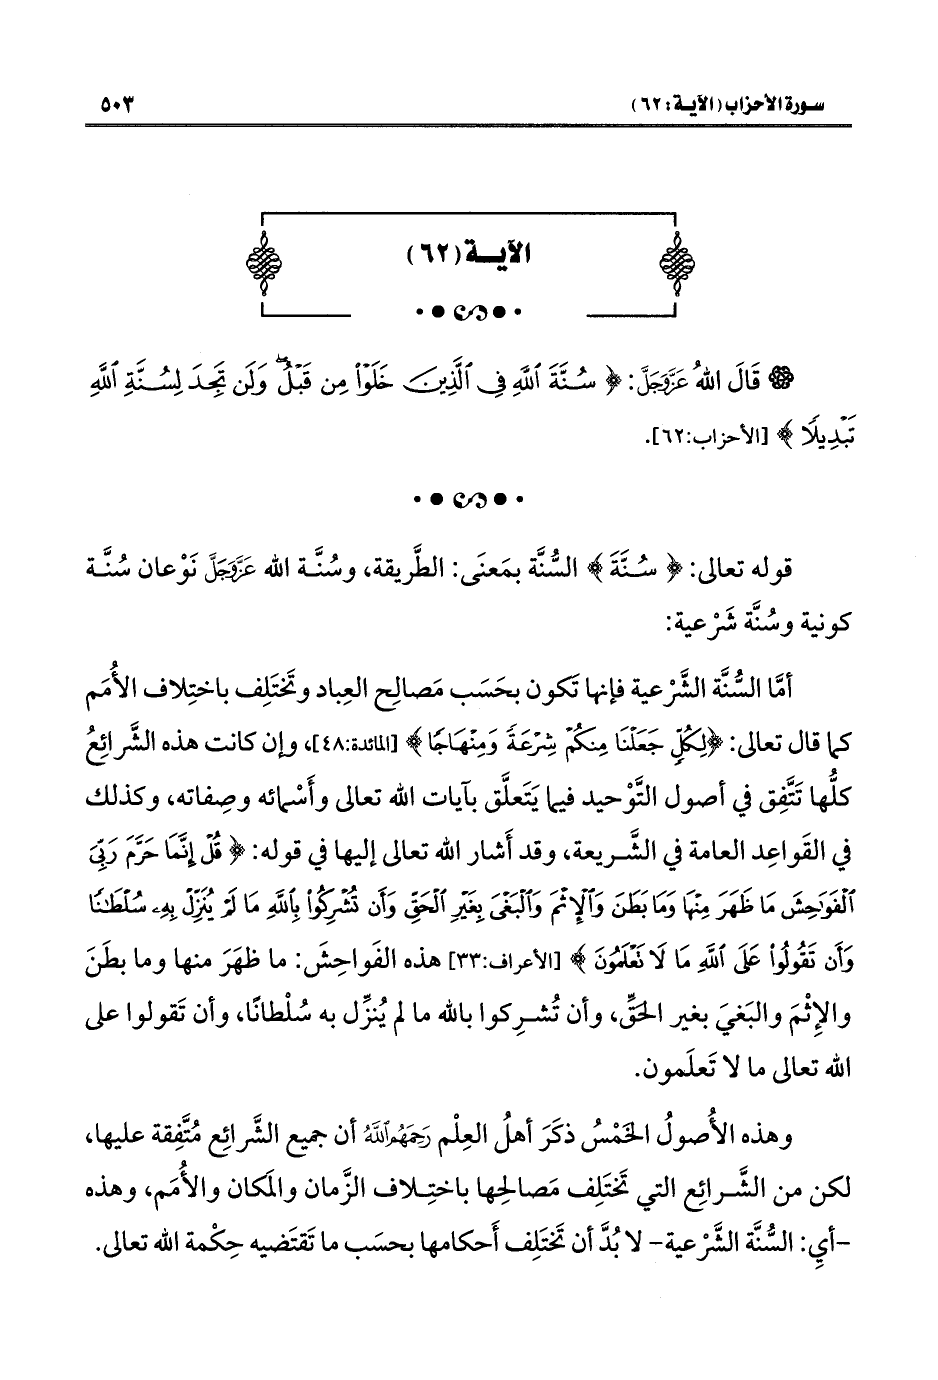 سورة الأحزاب (الآية: ٦٢)
٥٠٣
الآية (٦٢)
قَالَ اللهُ عَزَّوَجَلَّ: ﴿ سُنَّةَ ٱللَّهِ فِى ٱلَّذِينَ خَلَوْا۟ مِن قَبْلُ ۖ وَلَن تَجِدَ لِسُنَّةِ ٱللَّهِ
تَبْدِيلًا ﴾ [الأحزاب:٦٢].
قوله تعالى: ﴿ سُنَّةَ ﴾ السُّنَّة بمَعنَى: الطَّريقة، وسُنَّة الله عَزَّوَجَلَّ نَوْعان سُنَّة
كونية وسُنَّة شَرْعية:
أمَّا السُّنَّة الشَّرْعية فإنها تَكون بحَسَب مَصالِح العِباد وتَختَلِف باختِلاف الأُمَم
كما قال تعالى: ﴿لِكُلٍّ جَعَلْنَا مِنكُمْ شِرْعَةً وَمِنْهَاجًا﴾ [المائدة:٤٨]، وإن كانت هذه الشَّرائِعُ
كلُّها تَتَّفِق في أصول التَّوْحيد فيما يَتَعلَّق بآيات الله تعالى وأَسْمائه وصِفاته، وكذلك
في القَواعِد العامة في الشَّريعة، وقد أَشار الله تعالى إليها في قوله: ﴿ قُلْ إِنَّمَا حَرَّمَ رَبِّىَ
ٱلْفَوَٰحِشَ مَا ظَهَرَ مِنْهَا وَمَا بَطَنَ وَٱلْإِثْمَ وَٱلْبَغْىَ بِغَيْرِ ٱلْحَقِّ وَأَن تُشْرِكُوا۟ بِٱللَّهِ مَا لَمْ يُنَزِّلْ بِهِۦ سُلْطَٰنًا
وَأَن تَقُولُوا۟ عَلَى ٱللَّهِ مَا لَا تَعْلَمُونَ ﴾ [الأعراف:٣٣] هذه الفَواحِشَ: ما ظهَرَ منها وما بطَنَ
والإِثْمَ والبَغيَ بغير الحَقِّ، وأن تُشرِكوا بالله ما لم يُنزِّل به سُلْطانًا، وأن تَقولوا على
الله تعالى ما لا تَعلَمون.
وهذه الأُصولُ الخَمْسُ ذكَرَ أهلُ العِلْم رَحِمَهُمُاللَّهُ أن جميع الشَّرائِع مُتَّفِقة عليها،
لكن من الشَّرائِع التي تَختَلِف مَصالِحها باختِلاف الزَّمان والمَكان والأُمَم، وهذه
-أي: السُّنَّة الشَّرْعية- لا بُدَّ أن تَختَلِف أَحكامها بحسَب ما تَقتَضيه حِكْمة الله تعالى.